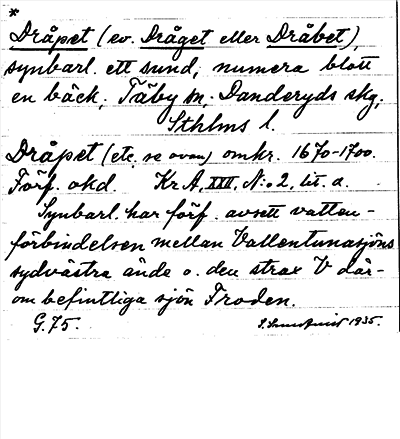 *
Dråpet (ev. Dråget eller Dråbet),
synbarl. ett sund, numera blott
en bäck; Täby sn, Danderyds skg,
Sthlms l.
Dråpet (etc, se ovan) omkr. 1670-1700.
Förf. okd. Kr A, XXII, N:o 2, lit. a.
Synbarl. har förf. avsett vatten-
förbindelsen mellan Vallentunasjöns
sydvästra ände o. den strax V där-
om befintliga sjön Froden.
G.75. 1935.